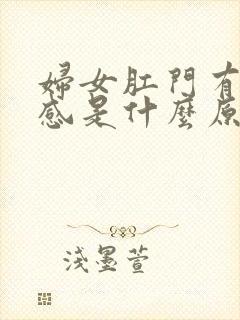 婦女肛門有
感是什麼原
淺墨萱